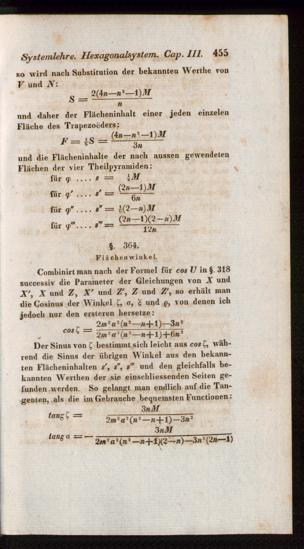 Systemlehre. Hexagonalsystem. Cap. III. 455
so wird nach Substitution der bekannten Werthe von
V und N:
S = 2(4n—n²—1)M / n
und daher der Flächeninhalt einer jeden einzelen
Fläche des Trapezoëders:
F = ⅙S = (4n—n²—1)M / 3n
und die Flächeninhalte der nach aussen gewendeten
Flächen der vier Theilpyramiden:
für φ .... s = ½M
für φ' .... s' = (2n—1)M / 6n
für φ'' .... s'' = ⅙(2—n)M
für φ''' .... s''' = (2n—1)(2—n)M / 12n
§. 364.
Flächenwinkel.
Combinirt man nach der Formel für cos U in §. 318
successiv die Parameter der Gleichungen von X und
X', X und Z, X' und Z', Z und Z', so erhält man
die Cosinus der Winkel ζ, σ, und ϱ, von denen ich
jedoch nur den ersteren hersetze:
cos ζ = 2m²a²(n²—n+1)—3n² / 2m²a²(n²—n+1)+6n²
Der Sinus von ζ bestimmt sich leicht aus cos ζ, wäh-
rend die Sinus der übrigen Winkel aus den bekann-
ten Flächeninhalten s', s'', s''' und den gleichfalls be-
kannten Werthen der sie einschliessenden Seiten ge-
funden werden. So gelangt man endlich auf die Tan-
genten, als die im Gebrauche bequemsten Functionen:
tang ζ = 3nM / 2m²a²(n²—n+1)—3n²
tang σ = — 3nM / 2m²a²(n²—n+1)(2—n)—3n²(2n—1)